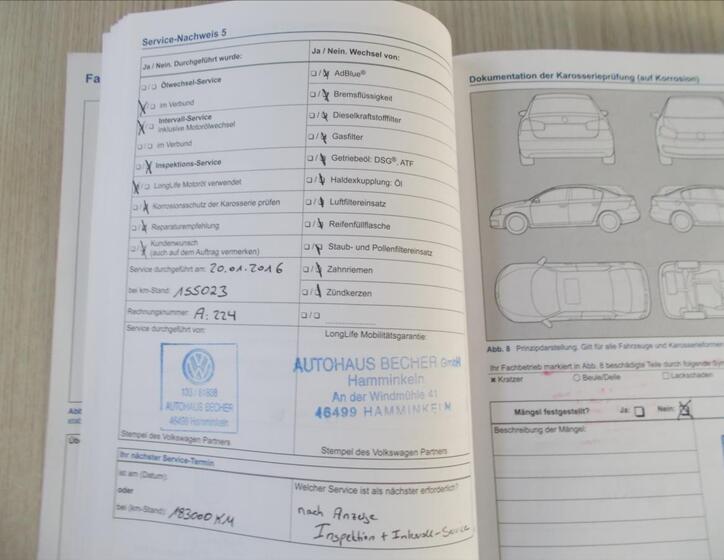 Service-Nachweis 5
Ja / Nein. Durchgeführt wurde:
Ölwechsel-Service
im Verbund
Intervall-Service
inklusive Motorölwechsel
im Verbund
Inspektions-Service
LongLife Motoröl verwendet
Korrosionsschutz der Karosserie prüfen
Reparaturempfehlung
Kundenwunsch
(auch auf dem Auftrag vermerken)
Service durchgeführt am: 20.01.2016
bei km-Stand: 155023
Rechnungsnummer: A: 224
Service durchgeführt von:
AUTOHAUS BECHER
46499 Hamminkeln
Stempel des Volkswagen Partners
Ihr nächster Service-Termin
ist am (Datum):
oder
bei (km-Stand): 183000 KM
Ja / Nein. Wechsel von:
AdBlue®
Bremsflüssigkeit
Dieselkraftstofffilter
Gasfilter
Getriebeöl: DSG®, ATF
Haldexkupplung: Öl
Luftfiltereinsatz
Reifenfüllflasche
Staub- und Pollenfiltereinsatz
Zahnriemen
Zündkerzen
LongLife Mobilitätsgarantie:
AUTOHAUS BECHER GmbH
Hamminkeln
An der Windmühle 41
46499 HAMMINKELN
Stempel des Volkswagen Partners
Welcher Service ist als nächster erforderlich?
nach Anzeige
Inspektion + Intervall-Service
Dokumentation der Karosserieprüfung (auf Korrosion)
Abb. 8 Prinzipdarstellung. Gilt für alle Fahrzeuge und Karosserieformen
Ihr Fachbetrieb markiert in Abb. 8 beschädigte Teile durch folgende
Kratzer
Beule/Delle
Lackschaden
Mängel festgestellt? Ja: Nein:
Beschreibung der Mängel: